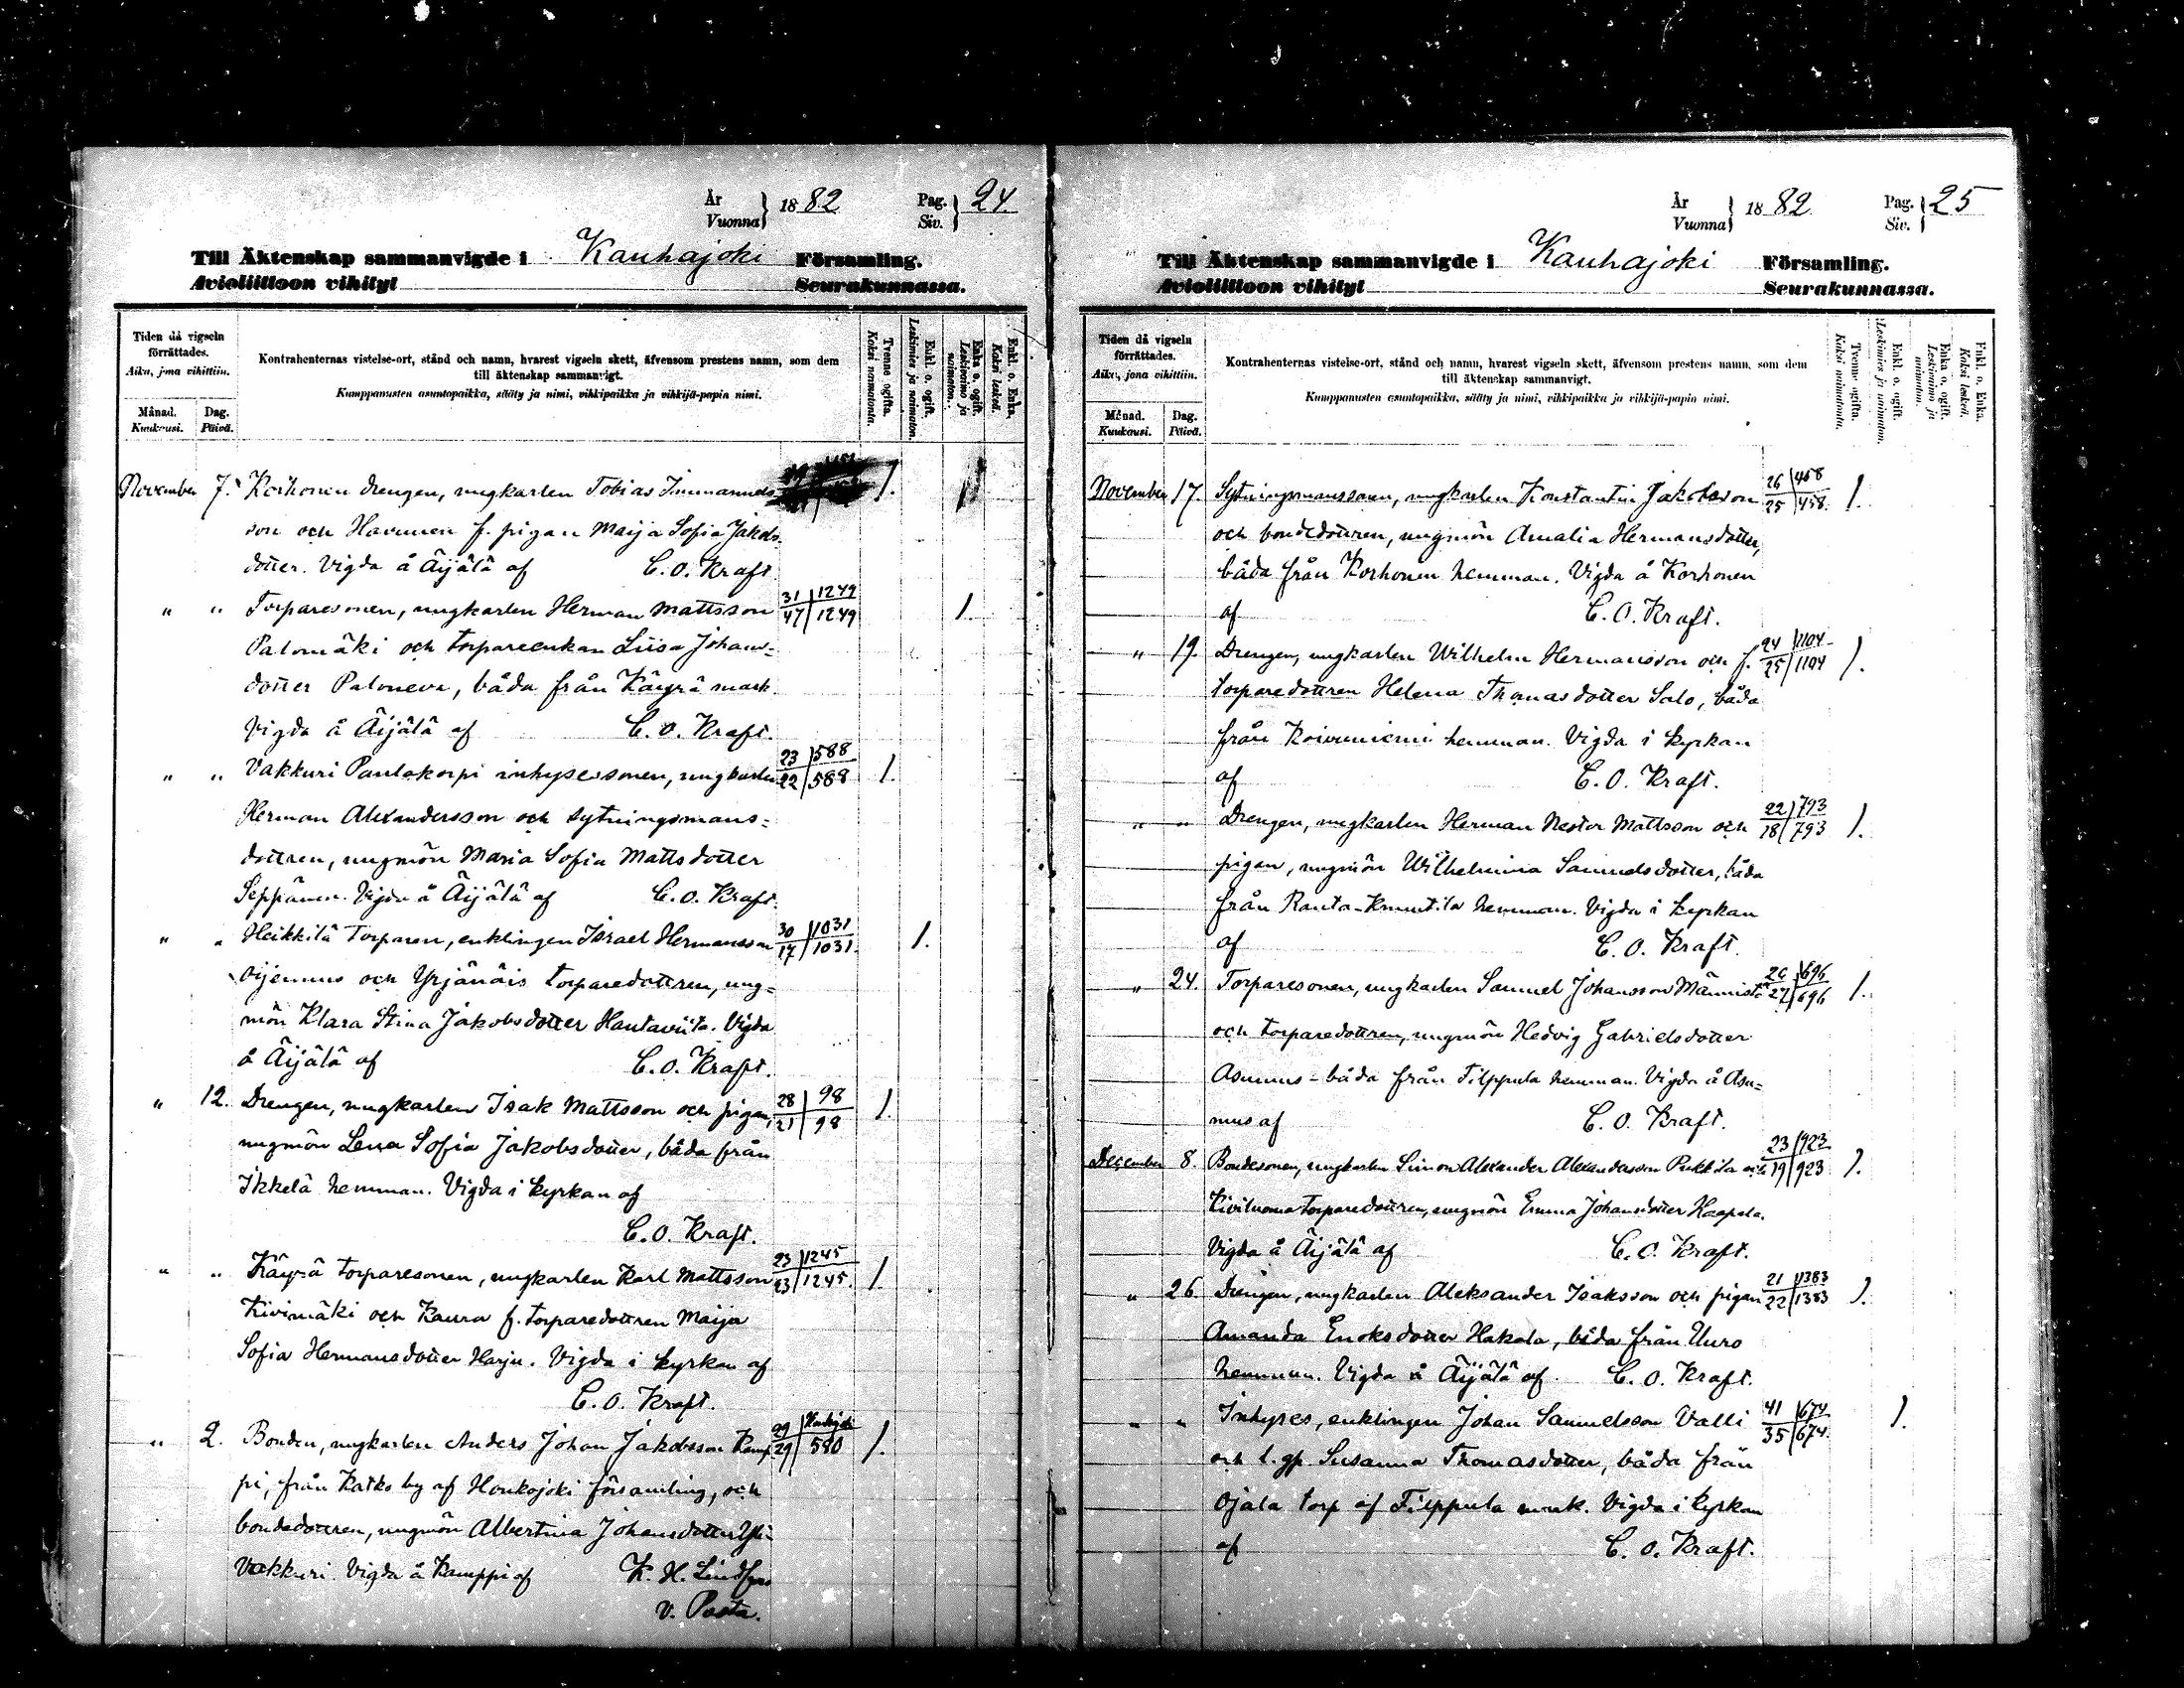 År
Vuonna } 1882 Pag. Siv. } 24.
Till Äktenskap sammanvigde i Kauhajoki Församling.
Avioliittoon vihityt Seurakunnassa.
Tiden då vigseln förrättades.
Aika, jona vihittiin.
Månad. Kuukausi.
Dag. Päivä.
Kontrahenternas vistelse-ort, stånd och namn, hvarest vigseln skett, äfvensom prestens namn, som dem
till äktenskap sammanvigt.
Kumppanusten asuntopaikka, sääty ja nimi, vihkipaikka ja vihkijä-papin nimi.
Tvenne ogifta. Kaksi naimatonta.
Enkl. o. ogift. Leskimies ja naimaton.
Enka o. ogift. Leskivaimo ja naimaton.
Enkl. o. Enka. Kaksi leskeä.
November 7. Korhonen drengen, ungkarlen Tobias Immanuels- 1.
son och Havunen f. pigan Maija Sofia Jakobs-
dotter. Vigda å Äijälä af C. O. Kraft.
" " Torparesonen, ungkarlen Herman Mattsson 31 1249 47 1249 1.
Palomäki och torpareenkan Liisa Johans-
dotter Paloneva, båda från Käyrä mark.
Vigda å Äijälä af C. O. Kraft.
" " Vakkuri Pantakorpi inhysessonen, ungkarlen 23 588 22 588 1.
Herman Alexandersson och sytningsmans-
dottren, ungmön Maria Sofia Mattsdotter
Seppänen. Vigda å Äijälä af C. O. Kraft.
" " Heikkilä torparen, enklingen Israel Hermansson 30 1031 17 1031. 1.
Ojennus och Yrjänäis torparedottren, ung-
mön Klara Stina Jakobsdotter Hautaviita. Vigda
å Äijälä af C. O. Kraft.
" 12. Drengen, ungkarlen Isak Mattsson och pigan, 28 98 21 98 1.
ungmön Lena Sofia Jakobsdotter, båda från
Ikkelä hemman. Vigda i kyrkan af
C. O. Kraft.
" " Käyrä torparesonen, ungkarlen Karl Mattsson 23 1245 23 1245. 1.
Kivimäki och Kaura f. torparedottren Maija
Sofia Hermansdotter Harju. Vigda i kyrkan af
C. O. Kraft.
" 2. Bonden, ungkarlen Anders Johan Jakobsson Kamp- 29 29 580 1.
pi, från Katko by af Honkajoki församling, och
bondedottren, ungmön Albertina Johansdotter Yli-
Vakkuri. Vigda å Kamppi af K. H. Lindfors
v. Pastor.
År
Vuonna } 1882. Pag. Siv. } 25
Till Äktenskap sammanvigde i Kauhajoki Församling.
Avioliittoon vihityt Seurakunnassa.
Tiden då vigseln förrättades.
Aika, jona vihittiin.
Månad. Kuukausi.
Dag. Päivä.
Kontrahenternas vistelse-ort, stånd och namn, hvarest vigseln skett, äfvensom prestens namn, som dem
till äktenskap sammanvigt.
Kumppanusten asuntopaikka, sääty ja nimi, vihkipaikka ja vihkijä-papin nimi.
Tvenne ogifta. Kaksi naimatonta.
Enkl. o. ogift. Leskimies ja naimaton.
Enka o. ogift. Leskivaimo ja naimaton.
Enkl. o. Enka. Kaksi leskeä.
November 17. Sytningsmanssonen, ungkarlen Konstantin Jakobsson 26 458 25 458. 1.
och bondedottren, ungmön Amalia Hermansdotter,
båda från Korhonen hemman. Vigda å Korhonen
af C. O. Kraft.
" 19. Drengen, ungkarlen Wilhelm Hermansson och f. 24 1104 25 1104 1.
torparedottren Helena Thomasdotter Salo, båda
från Koivuniemi hemman. Vigda i kyrkan
af C. O. Kraft.
" " Drengen, ungkarlen Herman Nestor Mattsson och 22 793 18 793 1.
pigan, ungmön Wilhelmina Samuelsdotter, båda
från Ranta-Knuutila hemman. Vigda i kyrkan
af C. O. Kraft.
" 24. Torparesonen, ungkarlen Samuel Johansson Männistö 26 696 27 696 1.
och torparedottren, ungmön Hedvig Gabrielsdotter
Asunmus - båda från Filppula hemman. Vigda å Asu-
mus af C. O. Kraft.
December 8. Bondesonen, ungkarlen Simon Alexander Alexandersson Pukkila och 23 923 19 923 1.
Kiviluoma torparedottren, ungmön Emma Johansdotter Haapala.
Vigda å Äijälä af C. O. Kraft.
" 26. Drengen, ungkarlen Aleksander Isaksson och pigan 21 1383 22 1383 1.
Amanda Enoksdotter Hakala, båda från Uuro
hemman. Vigda å Äijälä af C. O. Kraft.
" " Inhyses, enklingen Johan Samuelsson Valli 41 674 35 674. 1.
och l. qp. Susanna Thomasdotter, båda från
Ojala torp af Filppula mark. Vigda i kyrkan
af C. O. Kraft.